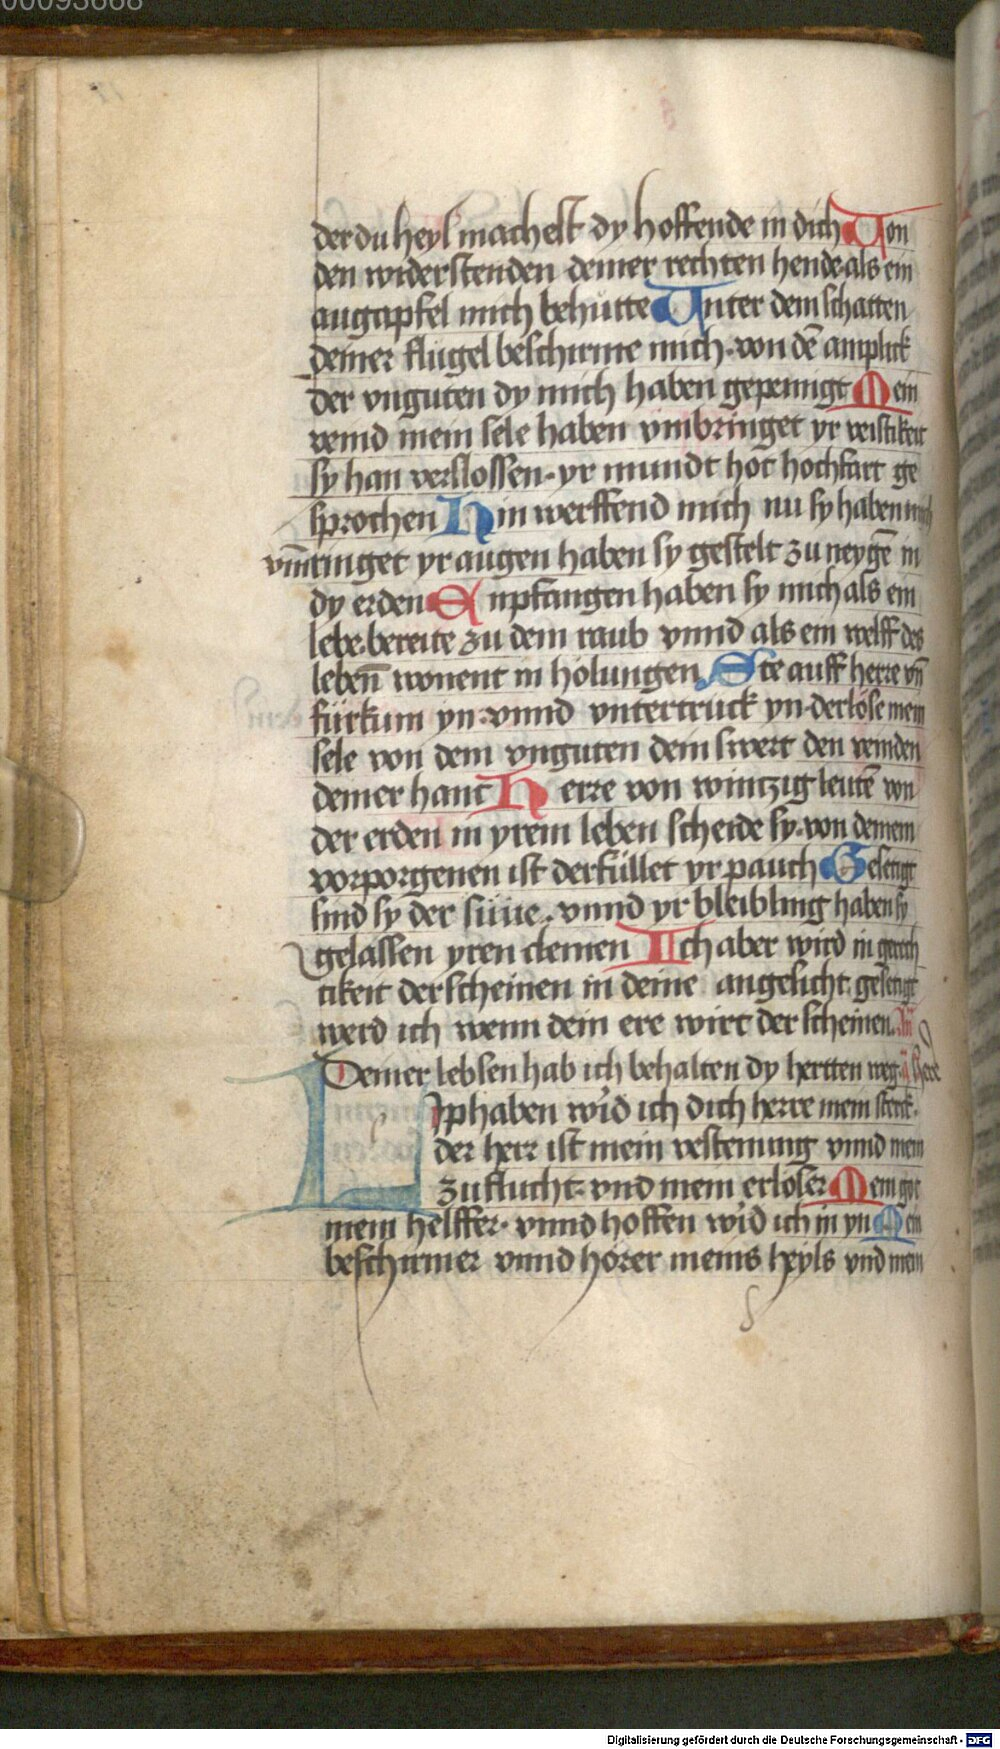 00093668
der du heyl machest dy hoffende in dich Von
den widerstenden deiner rechten hende als ein
augapfel mich behutte Vnter dem schatten
deiner flugel beschirme mich · von dē amplick
der vnguten dy mich haben gepeinigt Mein
veind mein sele haben vmbringet yr veistikeit
sy han verslossen · yr mundt hot hochfart ge
sprochen Hin werffend mich nu sy haben mich
vm̄ringet yr augen haben sy gestelt zu neygē in
dy erden Enpfangen haben sy mich als ein
lebe bereite zu dem raub vnnd als ein welff des
lebeñ wonent in holungen Ste auff herre vñ
fürkum yn · vnnd vntertruck yn · derlöse mein
sele von dem vnguten dein swert den veinden
deiner hant Herre von wintzig leutē von
der erden in yrem leben scheide sy · von deinem
vorporgenen ist derfüllet yr pauch Gesetigt
sind sy der süne · vnnd yr bleibling haben sy
gelassen yren cleinen Ich aber wird in gerech
tikeit derscheinen in deine angesicht gesetigt
werd ich wenn dein ere wirt derscheinen
Deiner lebsen hab ich behalten dy hertten weg
Liphaben wi̓d ich dich herre mein sterk ·
der herr ist mein vestenung vnnd mein
zuflucht · vnd mein erlöser Mein got
mein helffer · vnnd hoffen wi̓d ich in yn Mein
beschirmer vnnd horer meins heyls vnd mein
Digitalisierung gefördert durch die Deutsche Forschungsgemeinschaft - DFG